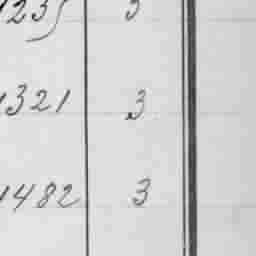 1235 3
1321 3
1482 3